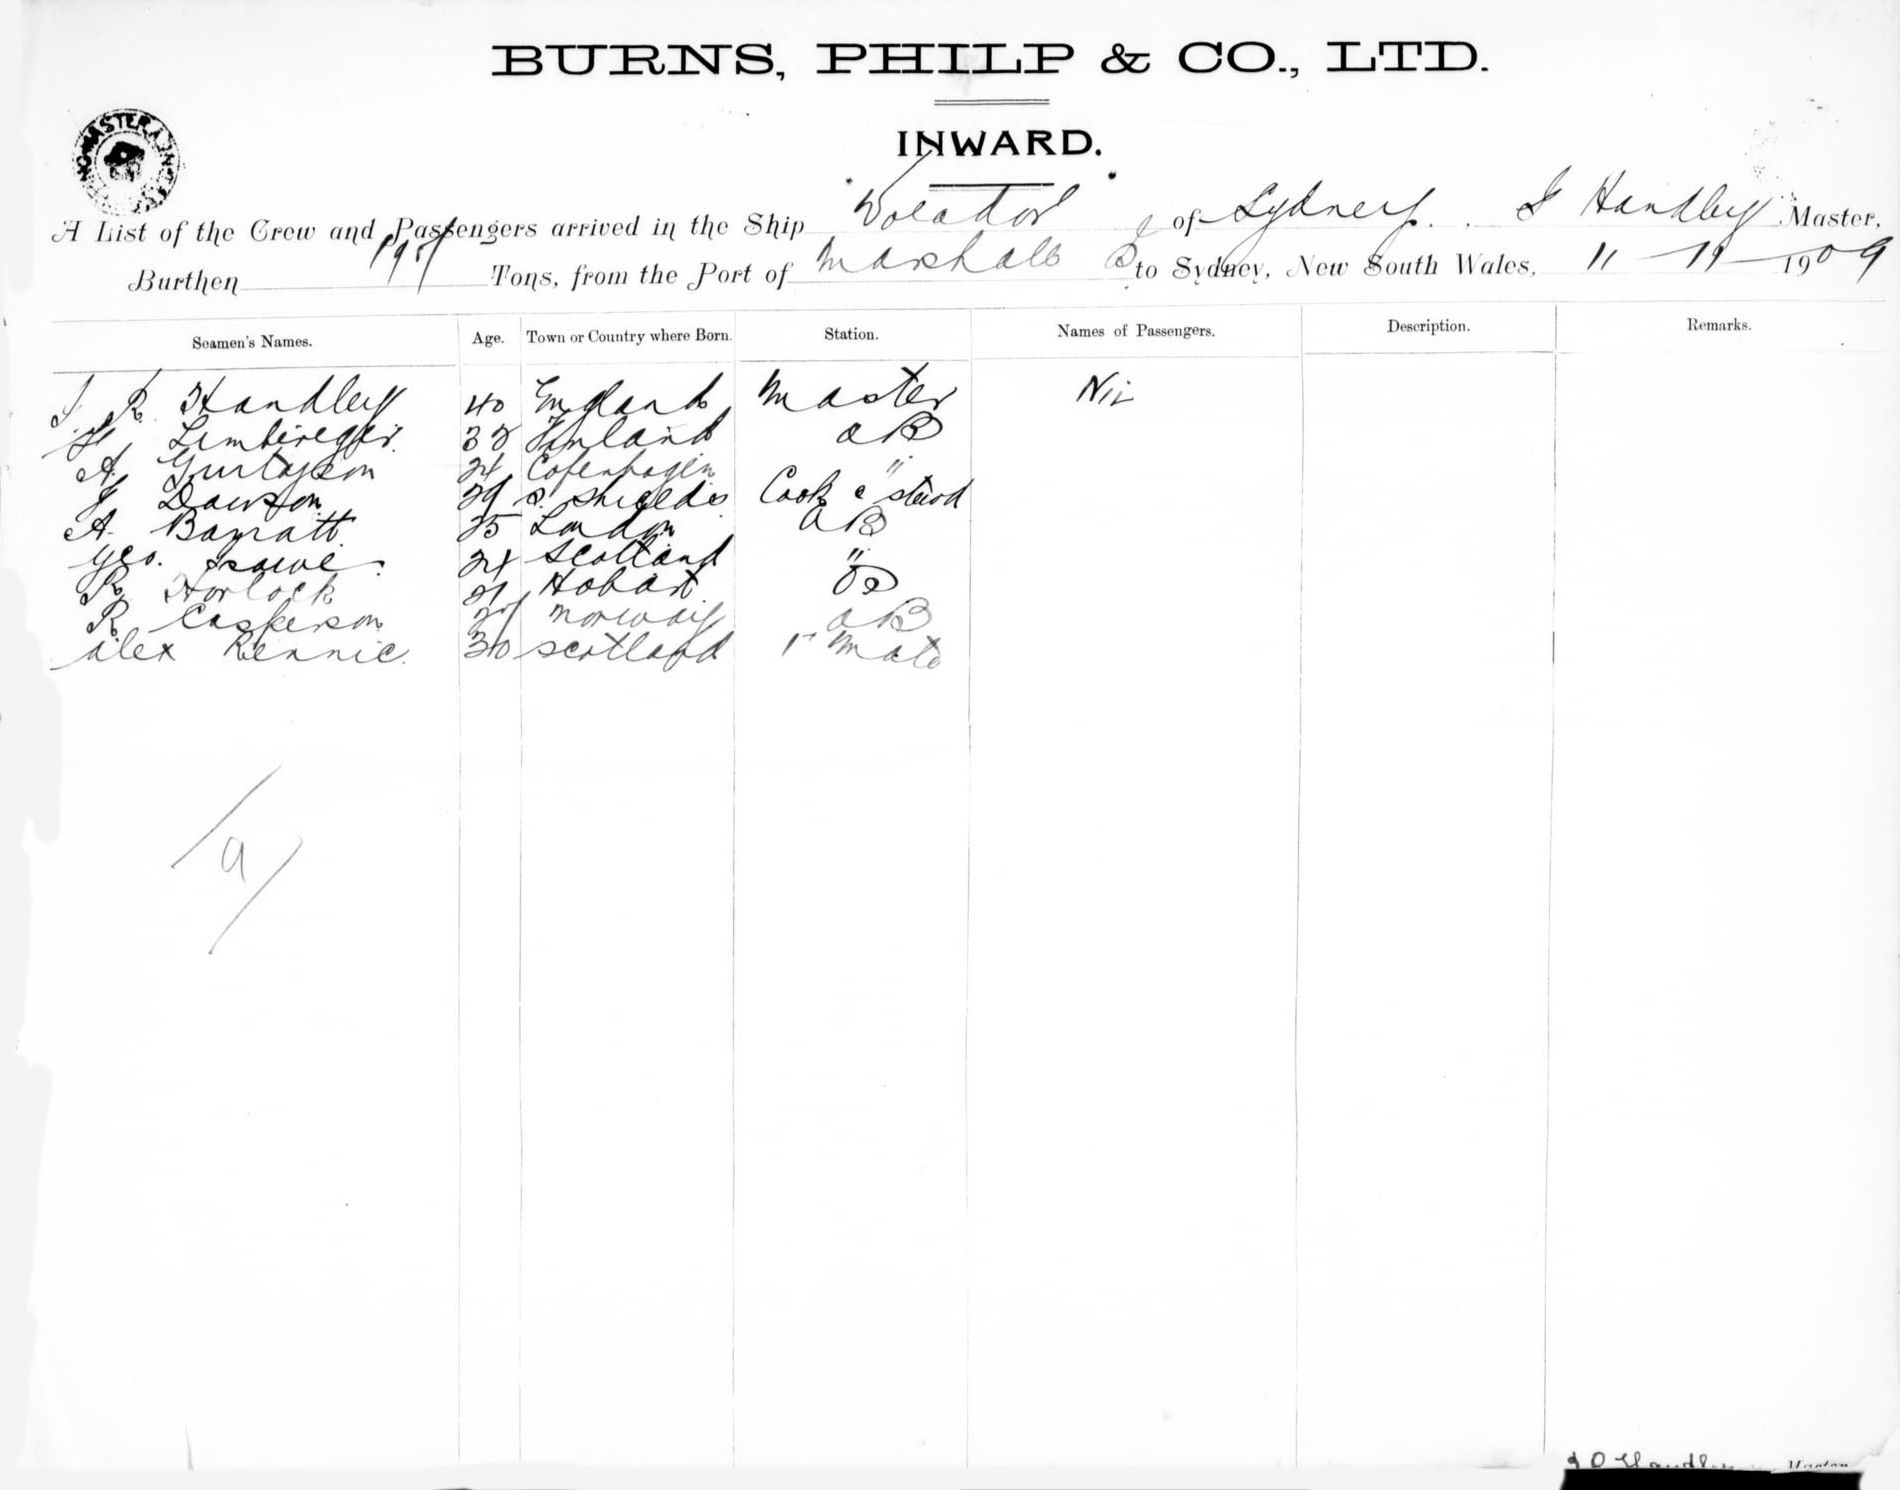 BURNS, PHILP & CO., LTD.
INWARD.
A List of the Crew and Passengers arrived in the Ship Volador of Sydney. Handley Master,
Burthen Tons, from the Port of Marshall to Sydney, New South Wales, 11 — 11 — 1909
Seamen's Names. Age. Town or Country where Born. Station. Names of Passengers. Description. Remarks.
R Handley 40 England Master Nil
Finland a B
A. 24 Copenhagen "
J Dawson 29 S. Shields Cook & stewd
A. Barratt 25 London a B
Geo. 24 Scotland "
R Horlock 21 Hobart OS
R Casperson Norway a B
Alex Rennie. 30 Scotland 1st Mate
9
Handley Master